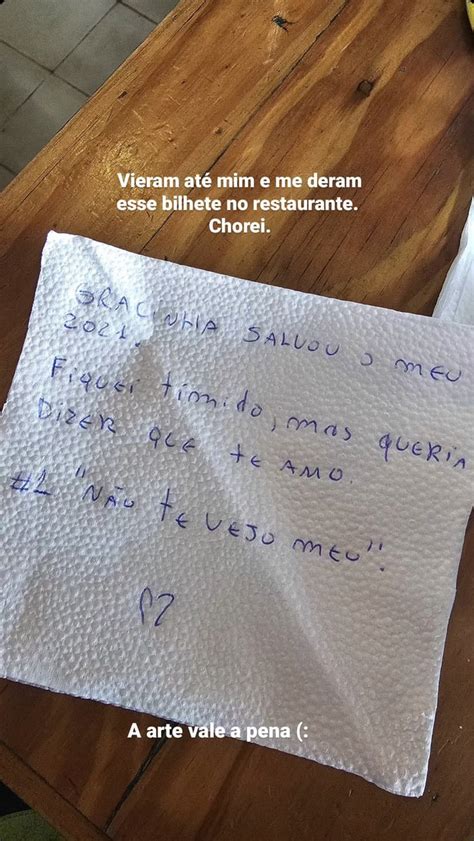 Vieram até mim e me deram
esse bilhete no restaurante.
Chorei.
GRACINHA SALVOU O MEU
2021.
FIQUEI tímido, mas QUERIA
DIZER QUE te AMO.
#1 "NÃO te VEJO MEU".
A arte vale a pena (: